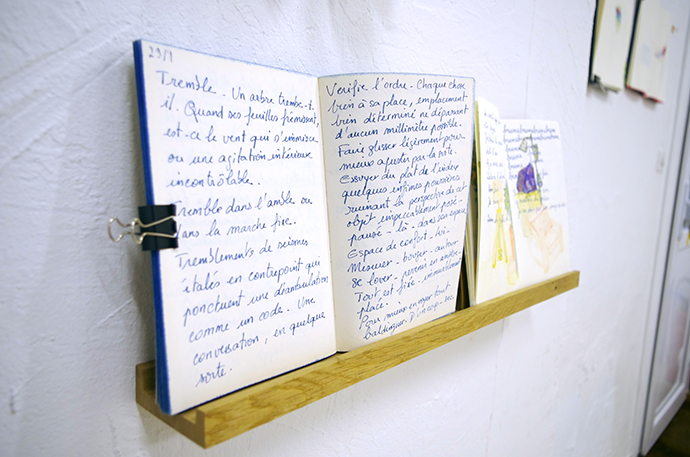 29/1
Tremble - Un arbre tremble-t-
il. Quand ses feuilles frémissent,
est-ce le vent qui s'immisce
ou une agitation intérieure
incontrôlable.
Tremble dans l'amble ou
dans la marche fixe.
Tremblements de seismes
étalés en contrepoint qui
ponctuent une déambulation
comme un code. Une
conversation, en quelque
sorte.
Vérifie l'ordre - Chaque chose
bien à sa place, emplacement
bien déterminé ne déparant
d'aucun millimètre possible.
Faire glisser légèrement pour
mieux ajuster par la suite.
Essuyer du plat de l'index
quelques infimes poussières
ruinant la perspective de cet
objet impeccablement posé -
pausé - là - dans son espace
Espace de confort - loi -
Mesurer - bouger - autour -
se lover - revenir en arrière -
Tout est fixe - immuablement
placé.
Pour mieux envoyer tout
baldinguer. D'un coup - sec